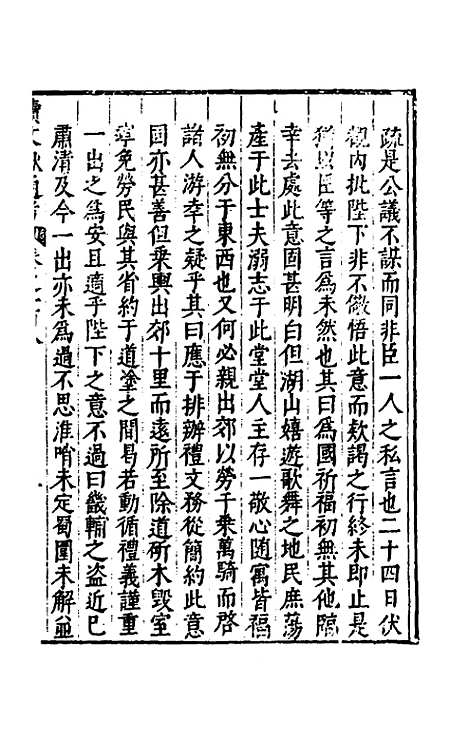 疏是公議不謀而同非臣一人之私言也二十四日伏
觀内批陛下非不儆悟此意而欵謁之行終未即止是
猶以臣等之言為未然也其曰為國祈福初無其他臨
幸去處此意固甚明白但湖山嬉遊歌舞之地民庶蕩
產于此士夫溺志于此堂堂人主存一敬心随寓皆福
初無分于東西也又何必親出郊以勞千乗萬騎而啓
諸人游幸之疑乎其曰應于排辦禮文務從簡約此意
固亦甚善但乗輿出郊十里而遠所至除道斫木毀室
寧免勞民與其省約于道塗之間曷若動循禮義謹重
一出之為安且適乎陛下之意不過曰畿輔之盗近已
肅清及今一出亦未為過不思淮哨未定蜀圍未解並